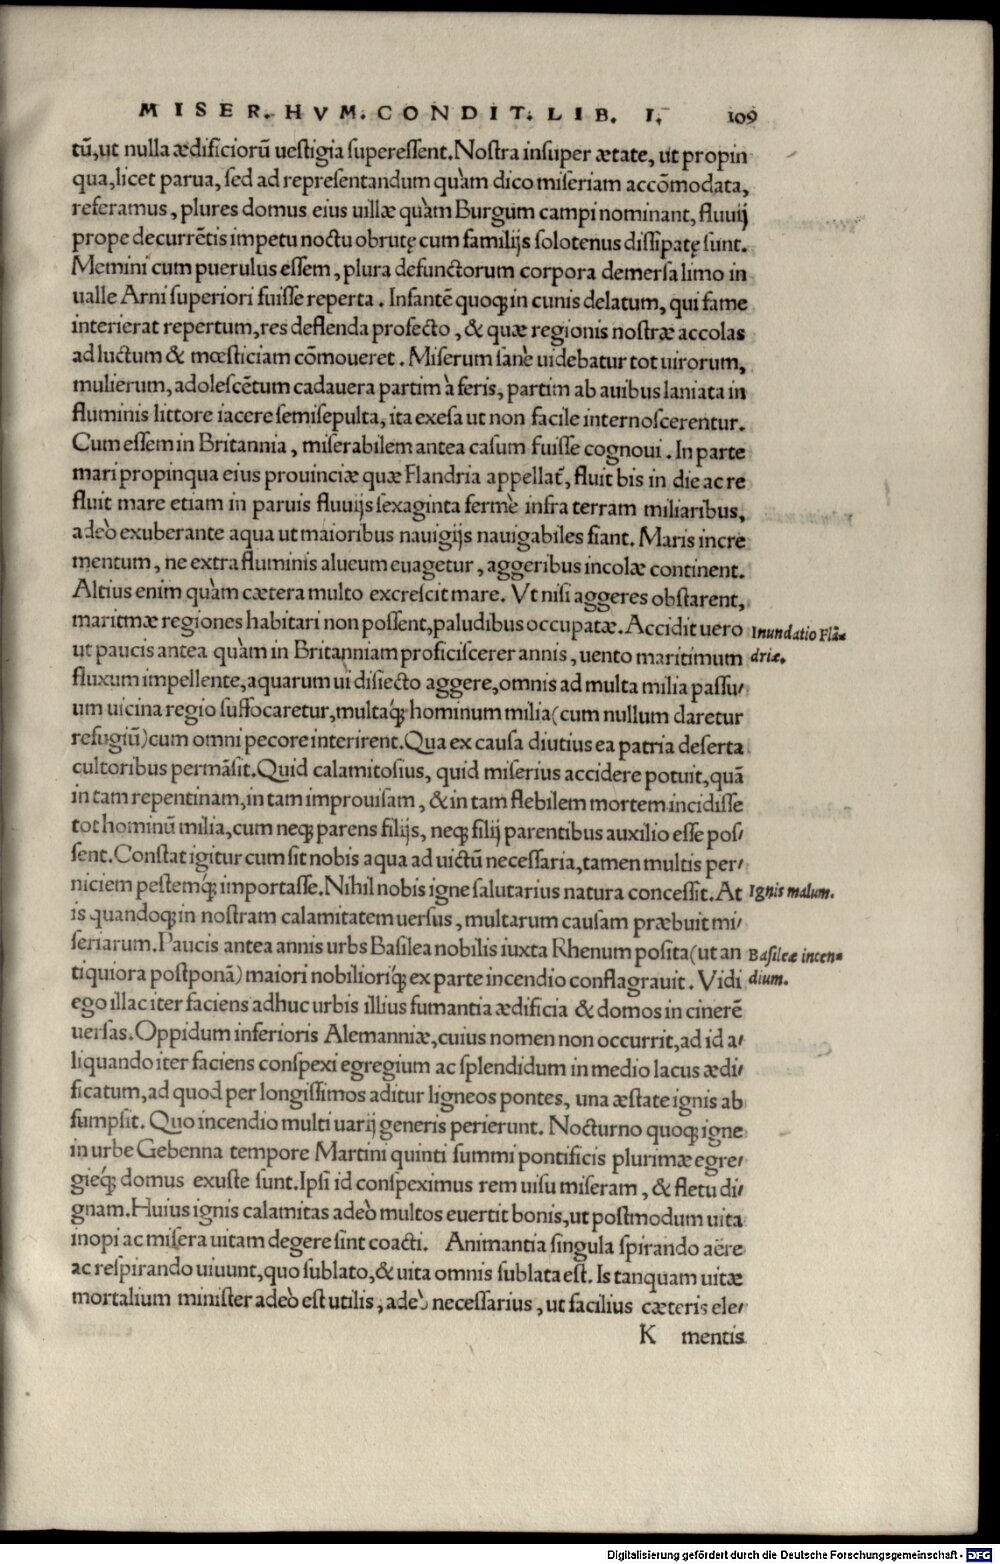 MISER. HVM. CONDIT. LIB. I. 109
tũ,ut nulla ædificiorũ uestigia superessent.Nostra insuper ætate, ut propin
qua,licet parua, sed ad repræsentandum quàm dico miseriam accõmodata,
referamus, plures domus eius uillæ quàm Burgum campi nominant, fluuij
prope decurrẽtis impetu noctu obrutę cum familijs solotenus dissipatę sunt.
Memini cum puerulus essem, plura defunctorum corpora demersa limo in
ualle Arni superiori fuisse reperta. Infantẽ quoq; in cunis delatum, qui fame
interierat repertum,res deflenda profecto, & quæ regionis nostræ accolas
ad luctum & mœsticiam cõmoueret. Miserum sanè uidebatur tot uirorum,
mulierum, adolescẽtum cadauera partim à feris, partim ab auibus laniata in
fluminis littore iacere semisepulta, ita exesa ut non facile internoscerentur.
Cum essem in Britannia, miserabilem antea casum fuisse cognoui. In parte
mari propinqua eius prouinciæ quæ Flandria appellat̃, fluit bis in die ac re
fluit mare etiam in paruis fluuijs sexaginta fermè infra terram miliaribus,
adeò exuberante aqua ut maioribus nauigijs nauigabiles fiant. Maris incre
mentum, ne extra fluminis alueum euagetur, aggeribus incolæ continent.
Altius enim quàm cætera multo excrescit mare. Vt nisi aggeres obstarent,
maritmæ regiones habitari non possent,paludibus occupatæ. Accidit uero
Inundatio Flã-
ut paucis antea quàm in Britanniam proficiscerer annis, uento maritimum
driæ.
fluxum impellente,aquarum ui disiecto aggere,omnis ad multa milia passu/
um uicina regio suffocaretur,multaq́; hominum milia(cum nullum daretur
refugiũ)cum omni pecore interirent.Qua ex causa diutius ea patria deserta
cultoribus permãsit.Quid calamitosius, quid miserius accidere potuit,quã
in tam repentinam,in tam improuisam, & in tam flebilem mortem incidisse
tot hominũ milia,cum neq; parens filijs, neq; filij parentibus auxilio esse pos/
sent.Constat igitur cum sit nobis aqua ad uictũ necessaria,tamen multis per/
niciem pestemq́; importasse. Nihil nobis igne salutarius natura concessit. At
Ignis malum.
is quandoq; in nostram calamitatem uersus, multarum causam præbuit mi/
seriarum. Paucis antea annis urbs Basilea nobilis iuxta Rhenum posita(ut an
Basileæ incen-
tiquiora postponã) maiori nobilioriq́; ex parte incendio conflagrauit. Vidi
dium.
ego illac iter faciens adhuc urbis illius fumantia ædificia & domos in cinerẽ
uersas. Oppidum inferioris Alemanniæ,cuius nomen non occurrit,ad id a/
liquando iter faciens conspexi egregium ac splendidum in medio lacus ædi/
ficatum,ad quod per longissimos aditur ligneos pontes, una æstate ignis ab
sumpsit. Quo incendio multi uarij generis perierunt. Nocturno quoq; igne
in urbe Gebenna tempore Martini quinti summi pontificis plurimæ egre/
gieq́; domus exuste sunt. Ipsi id conspeximus rem uisu miseram, & fletu di/
gnam. Huius ignis calamitas adeò multos euertit bonis,ut postmodum uita
inopi ac misera uitam degere sint coacti. Animantia singula spirando aëre
ac respirando uiuunt,quo sublato,& uita omnis sublata est. Is tanquam uitæ
mortalium minister adeò est utilis, adeò necessarius, ut facilius cæteris ele/
K mentis
Digitalisierung gefördert durch die Deutsche Forschungsgemeinschaft - DFG